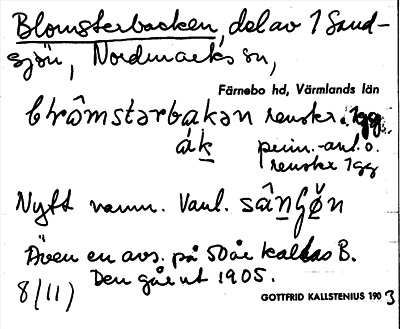 Blomsterbacken, del av 1 Sand-
sjön, Nordmarks sn,
Färnebo hd, Värmlands län
blrâmstərbakən renskr. 1gg
ák prim.-ant. o.
renskr 1gg
Nytt namn. Vanl. sângǿn
Även en avs. på 50 år kallas B.
Den går ut 1905.
8/11)
GOTTFRID KALLSTENIUS 1903